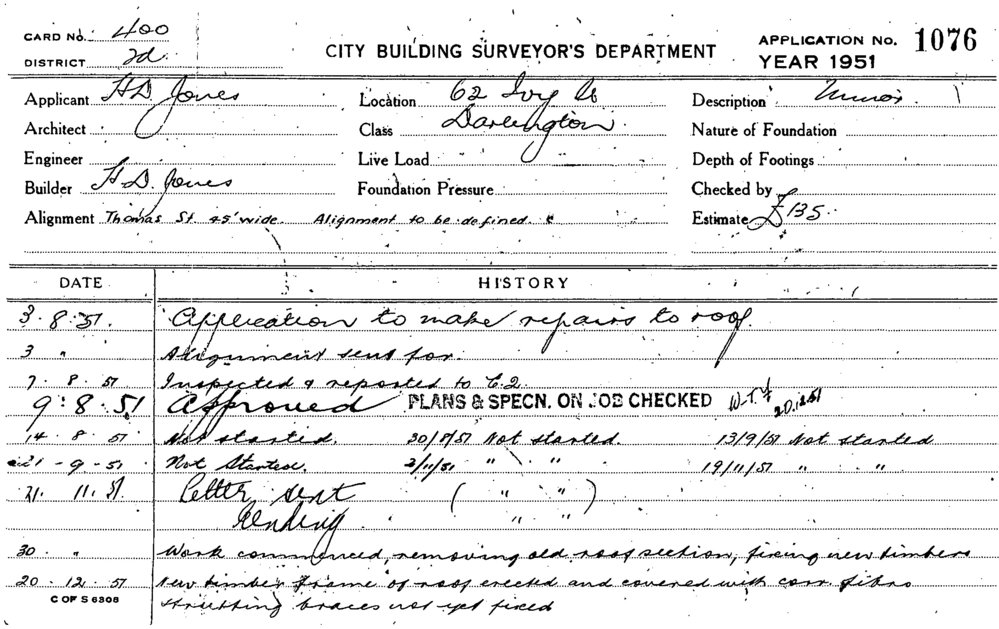 CARD No. 400
DISTRICT 2d.
CITY BUILDING SURVEYOR'S DEPARTMENT
APPLICATION No. 1076
YEAR 1951
Applicant H.D. Jones
Location 62 Ivy St
Description Minor
Architect
Class Darlington.
Nature of Foundation
Engineer
Live Load
Depth of Footings
Builder H.D. Jones
Foundation Pressure
Checked by
Alignment Thomas St. 45' wide. Alignment to be defined.
Estimate £135.
DATE HISTORY
3. 8. 51. Application to make repairs to roof.
3 " Alignment sent for.
7. 8. 51 Inspected & reported to C.2.
9. 8. 51 Approved PLANS & SPECN. ON JOB CHECKED 20.12.51
14. 8. 51 Not started. 30/8/51 Not started. 13/9/51 Not started
21 - 9 - 51 Not Started. 2/11/51 " " 19/11/51 " "
21. 11. 51 Letter sent ( " " )
Pending " "
30. " Work commenced, removing old roof section, fixing new timbers
20. 12. 51 New timber frame of roof erected and covered with corr. fibro
C OF S 6306
strutting braces not yet fixed